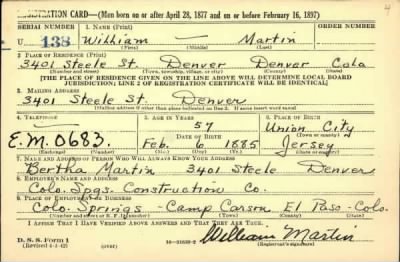 REGISTRATION CARD—(Men born on or after April 28, 1877 and on or before February 16, 1897)
SERIAL NUMBER 1. NAME (Print)
U 138 William — Martin
(First) (Middle) (Last)
2. PLACE OF RESIDENCE (Print)
3401 Steele St. Denver Denver Colo
(Number and street) (Town, township, village, or city) (County) (State)
[THE PLACE OF RESIDENCE GIVEN ON THE LINE ABOVE WILL DETERMINE LOCAL BOARD
JURISDICTION; LINE 2 OF REGISTRATION CERTIFICATE WILL BE IDENTICAL]
3. MAILING ADDRESS
3401 Steele St. Denver
[Mailing address if other than place indicated on line 2. If same insert word same]
4. TELEPHONE 5. AGE IN YEARS 6. PLACE OF BIRTH
57 Union City
DATE OF BIRTH (Town or county)
E.M. 0683 Feb. 6 1885 Jersey
(Exchange) (Number) (Mo.) (Day) (Yr.) (State or country)
7. NAME AND ADDRESS OF PERSON WHO WILL ALWAYS KNOW YOUR ADDRESS
Bertha Martin 3401 Steele Denver
8. EMPLOYER'S NAME AND ADDRESS
Colo. Spgs. Construction Co.
9. PLACE OF EMPLOYMENT OR BUSINESS
Colo. Springs - Camp Carson El Paso - Colo.
(Number and street or R. F. D. number) (Town) (County) (State)
I AFFIRM THAT I HAVE VERIFIED ABOVE ANSWERS AND THAT THEY ARE TRUE.
D. S. S. Form 1
(Revised 4-1-42) (over) William Martin
(Registrant's signature)